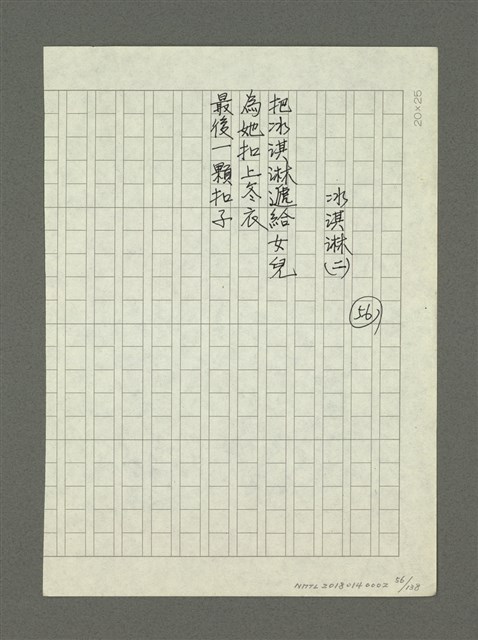 20×25
56
冰淇淋(二)
把冰淇淋遞給女兒
為她扣上冬衣
最後一顆扣子
NMTL20180140002 56/138